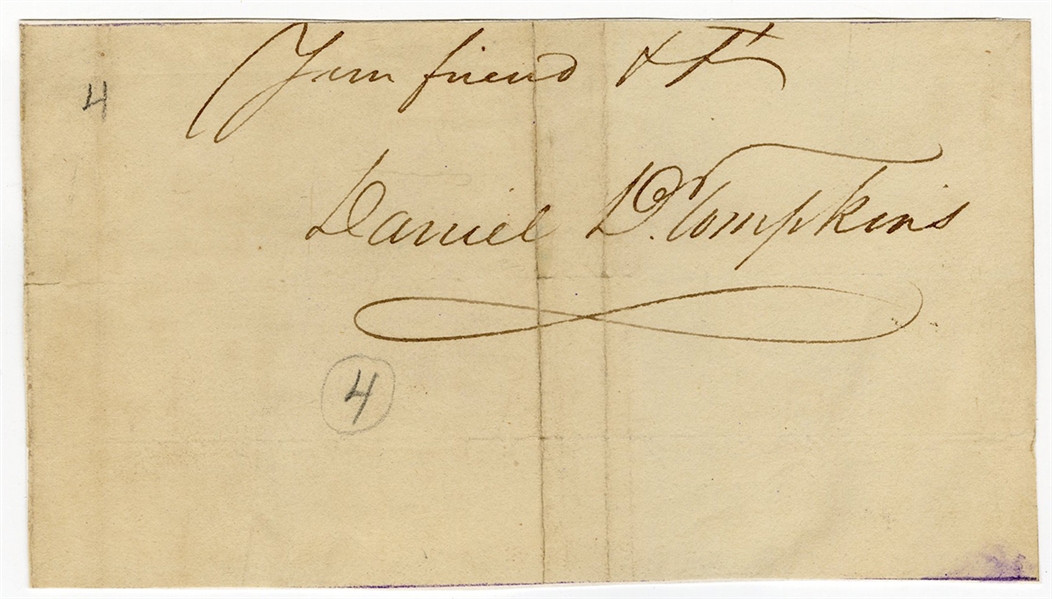 Your friend & St
4
Daniel D. Tompkins
4